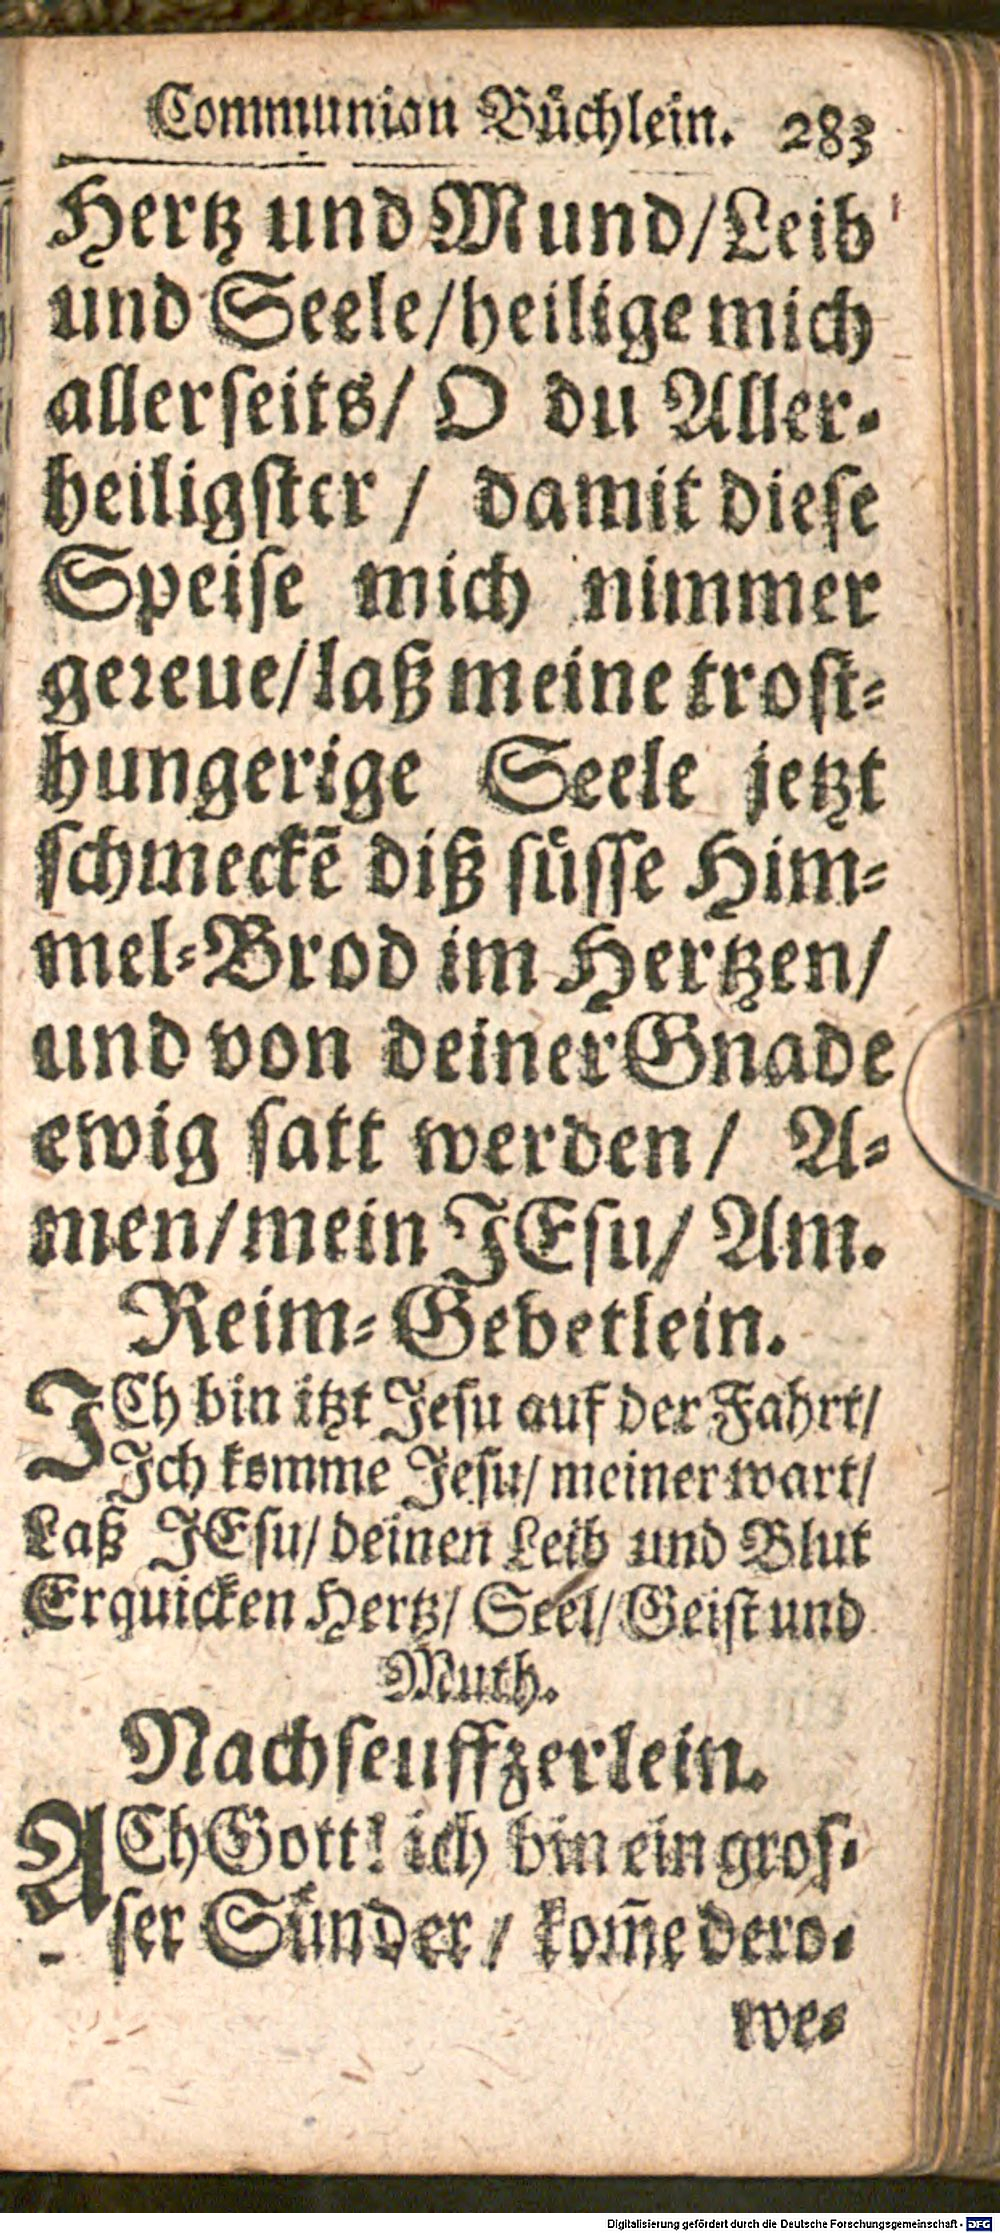 Communion Büchlein. 283
Hertz und Mund/Leib
und Seele/heilige mich
allerseits/ O du Aller-
heiligster / damit diese
Speise mich nimmer
gereue/laß meine trost-
hungerige Seele jetzt
schmeckẽ diß süsse Him-
mel-Brod im Hertzen/
und von deiner Gnade
ewig satt werden/ A-
men/mein JEsu/ Am.
Reim-Gebetlein.
JCh bin itzt Jesu auf der Fahrt/
Jch komme Jesu/ meiner wart/
Laß JEsu/ deinen Leib und Blut
Erquicken Hertz/ Seel/ Geist und
Muth.
Nachseuffzerlein.
ACh Gott! ich bin ein gros-
ser Sünder/ kom̃e dero-
we-
Digitalisierung gefördert durch die Deutsche Forschungsgemeinschaft - DFG